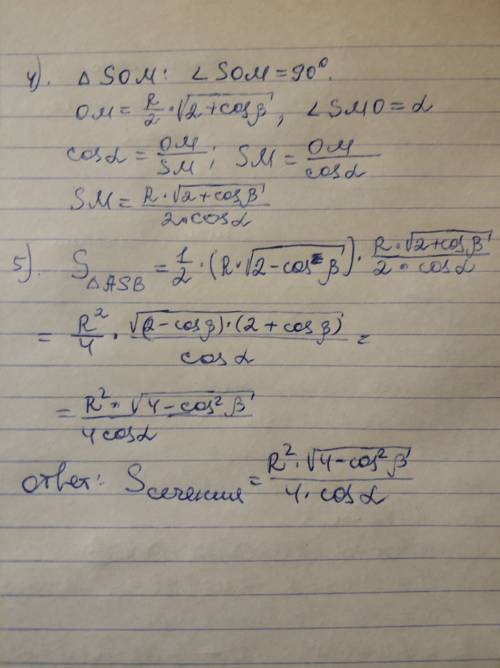 4). △SOM: ∠SOM = 90°.
OM = R/2 · √(2+cosβ), ∠SMO = α
cosα = OM/SM; SM = OM/cosα
SM = R·√(2+cosβ) / 2·cosα
5). S△ASB = 1/2 · (R·√(2-cosβ)) · R·√(2+cosβ) / 2·cosα
= R²/4 · √((2-cosβ)·(2+cosβ)) / cosα =
= R²·√(4-cos²β) / 4cosα
ответ: Sсечения = R²·√(4-cos²β) / 4·cosα